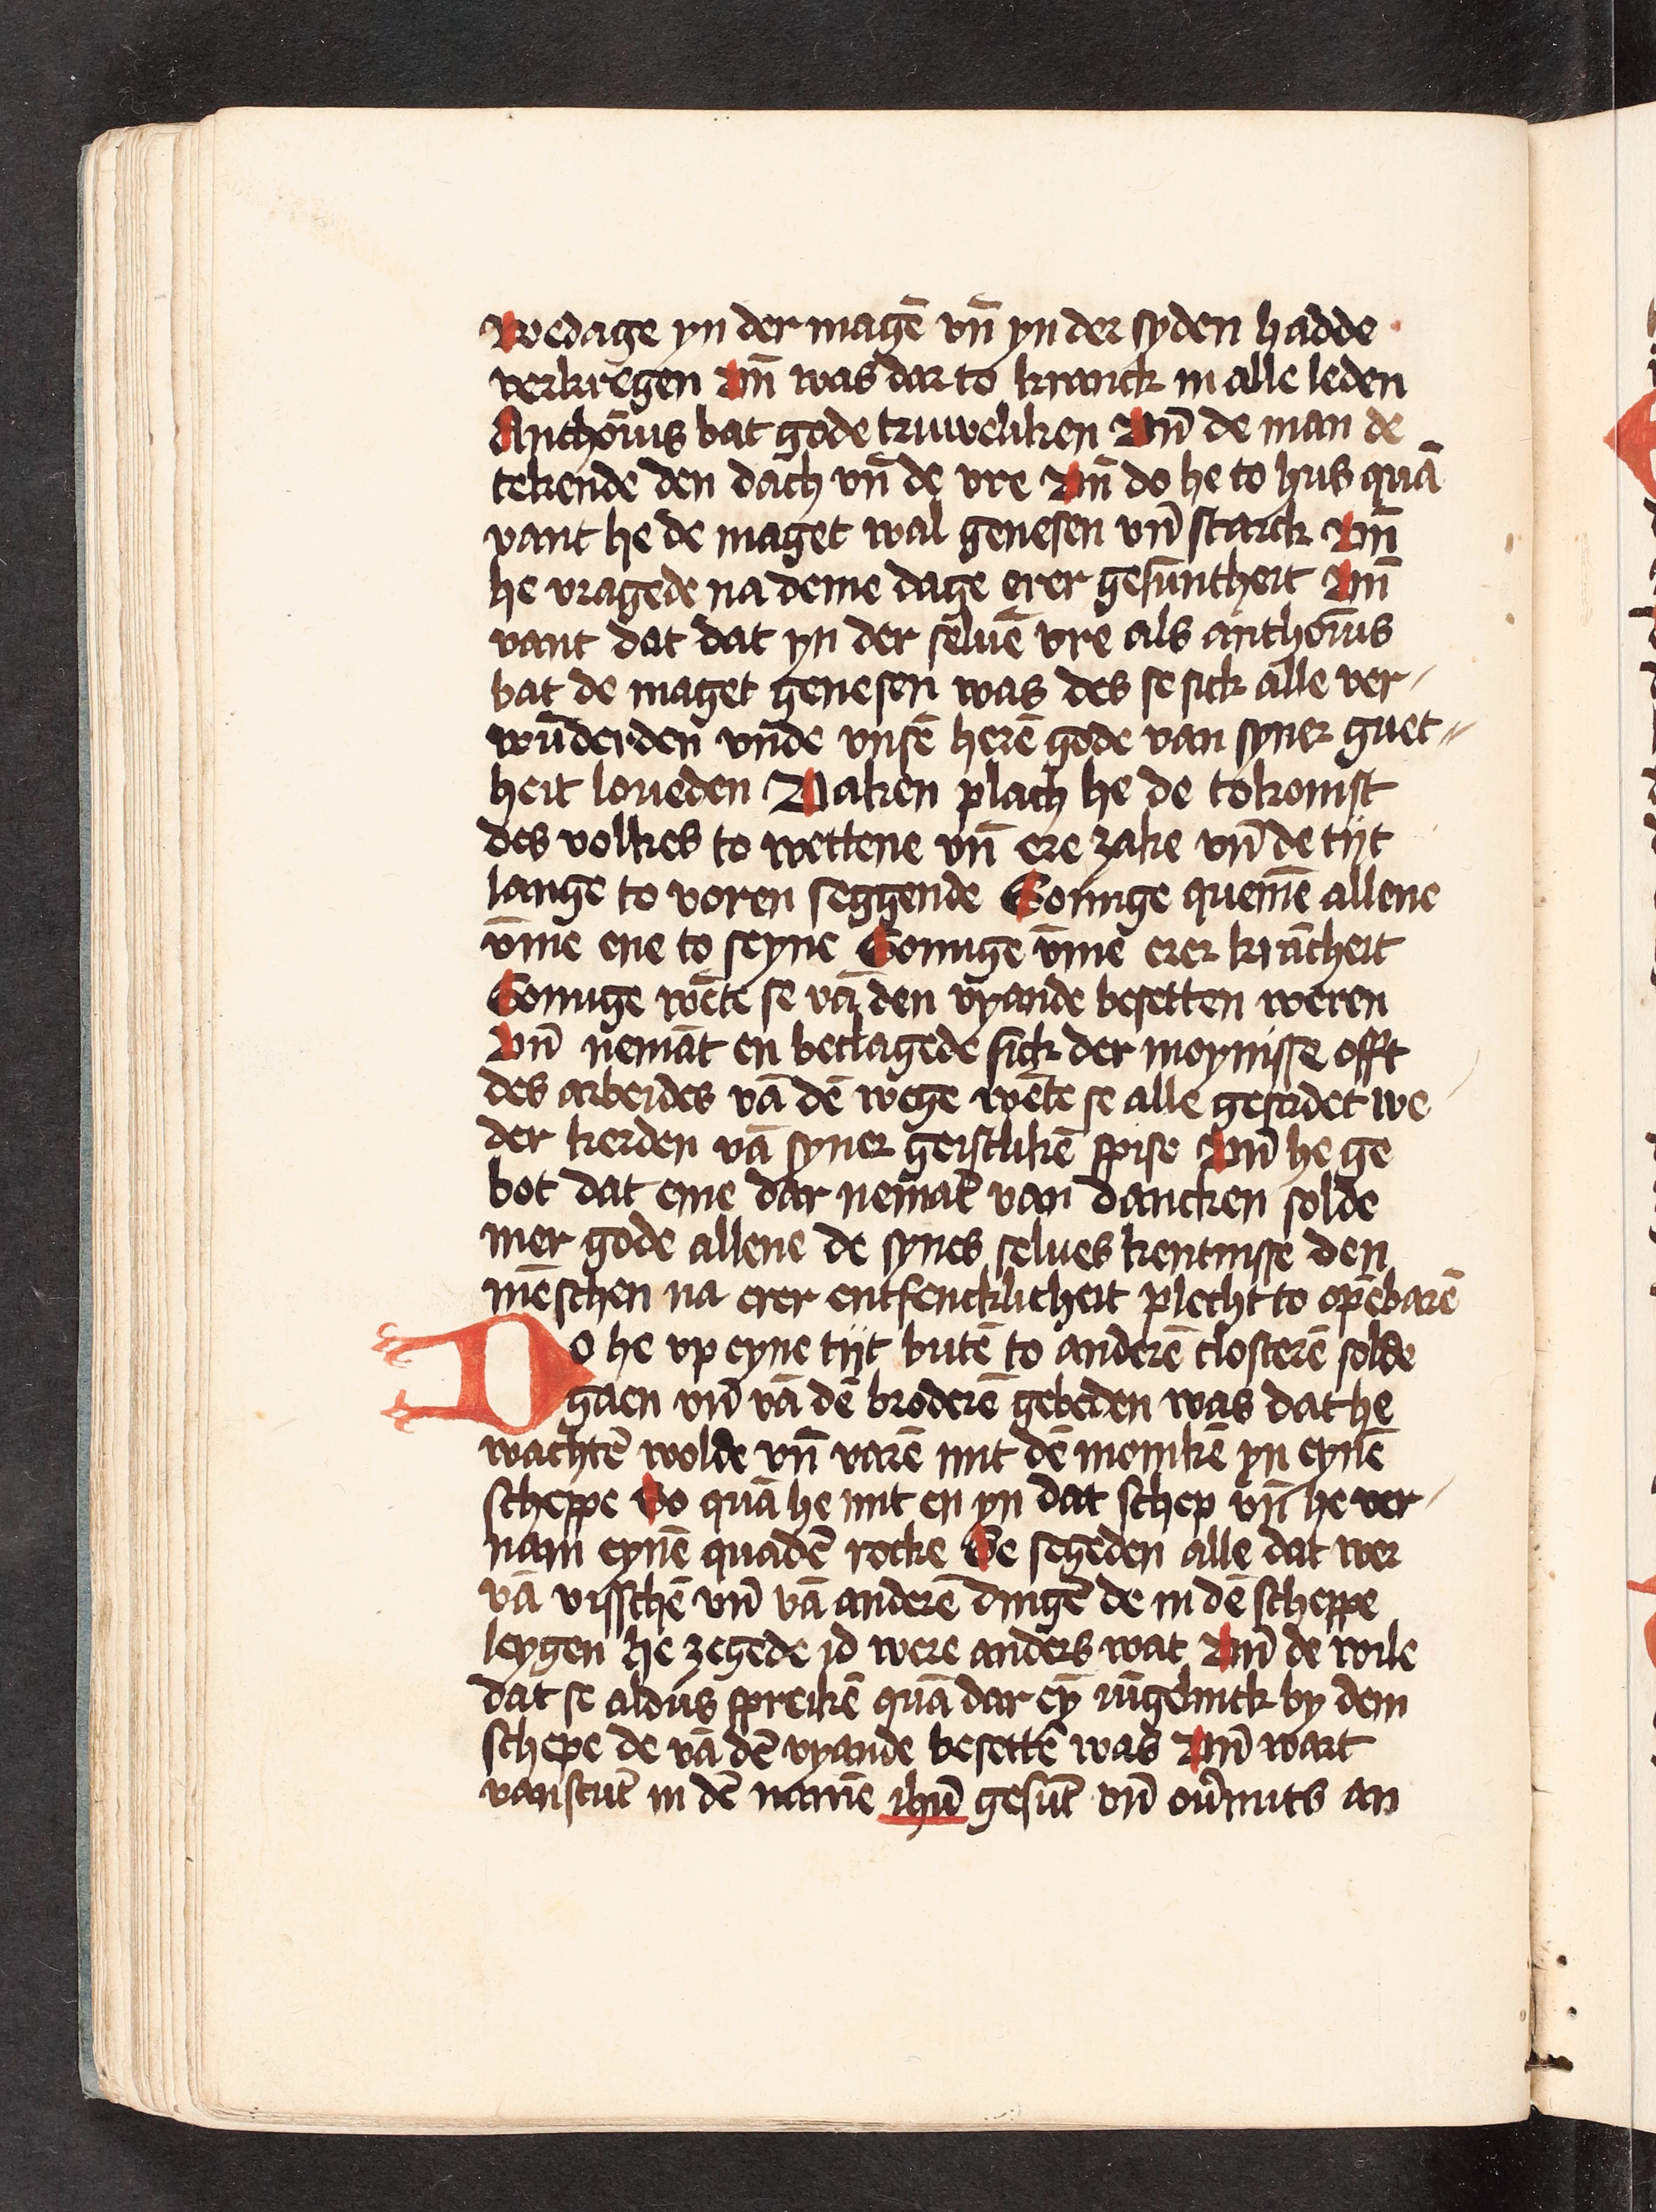 Wedage yn der magē vn̄ yn der syden hadde
verkregen Vn̄ was dar to kranck in alle leden
Anthoīus bat gode truweliken Vn̄ de man de
tekende den dach vn̄ de vre Vn̄ do he to hus quā
vant he de maget wal genesen vn̄ starck Vn̄
he vragede na deme dage erer gesūntheit Vn̄
vant dat dat yn der seluē vre als anthoīus
bat de maget genesen was des se sick alle ver-
wūderden vn̄de vnsē herē gode van syner guet-
heit loueden Vaken plach he de tokomst
des volkes to wettene vn̄ ere zake vn̄ de tijt
lange to voren seggende Somige quemē allene
v̄me ene to seyne Somige v̄me erer krācheit
Somige wēte se vā den vyande besetten weren
Vn̄ nemāt en beclagede sick der moynisse offt
des arbeides vā dē wege wēte se alle gesadet we
der kerden vā syner geistlikē spise Vn̄ he ge
bot dat eme dar nemāt van dancken solde
mer gode allene de synes selues kentnisse den
mēschen na erer entfencklicheit plecht to opēbarē
Do he vp eyne tijt butē to anderē closterē solde
gaen vn̄ vā dē broderē gebeden was dat he
wachtē wolde vn̄ varē mit dē monikē yn eynē
scheppe Do quā he mit en yn dat schep vn̄ he ver-
nam eynē quadē rocke Se scheden alle dat wer
vā visschē vn̄ vā anderē dingē de in dē scheppe
leygen he zegede id were anders wat Vn̄ de wile
dat se aldus sprekē quā dar eȳ iūgelinck by dem
schepe de vā dē vyande besettē was Vn̄ wart
vanstūt in dē namē ihū gesūt vn̄ ou̅mits an